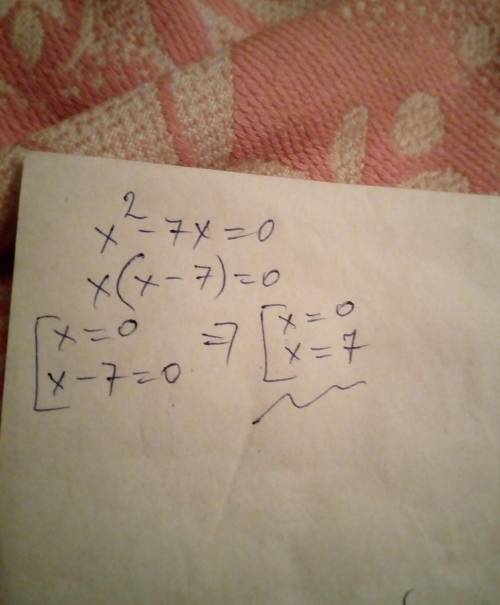 x² - 7x = 0
x(x - 7) = 0
[x = 0 => [x = 0
x - 7 = 0 x = 7